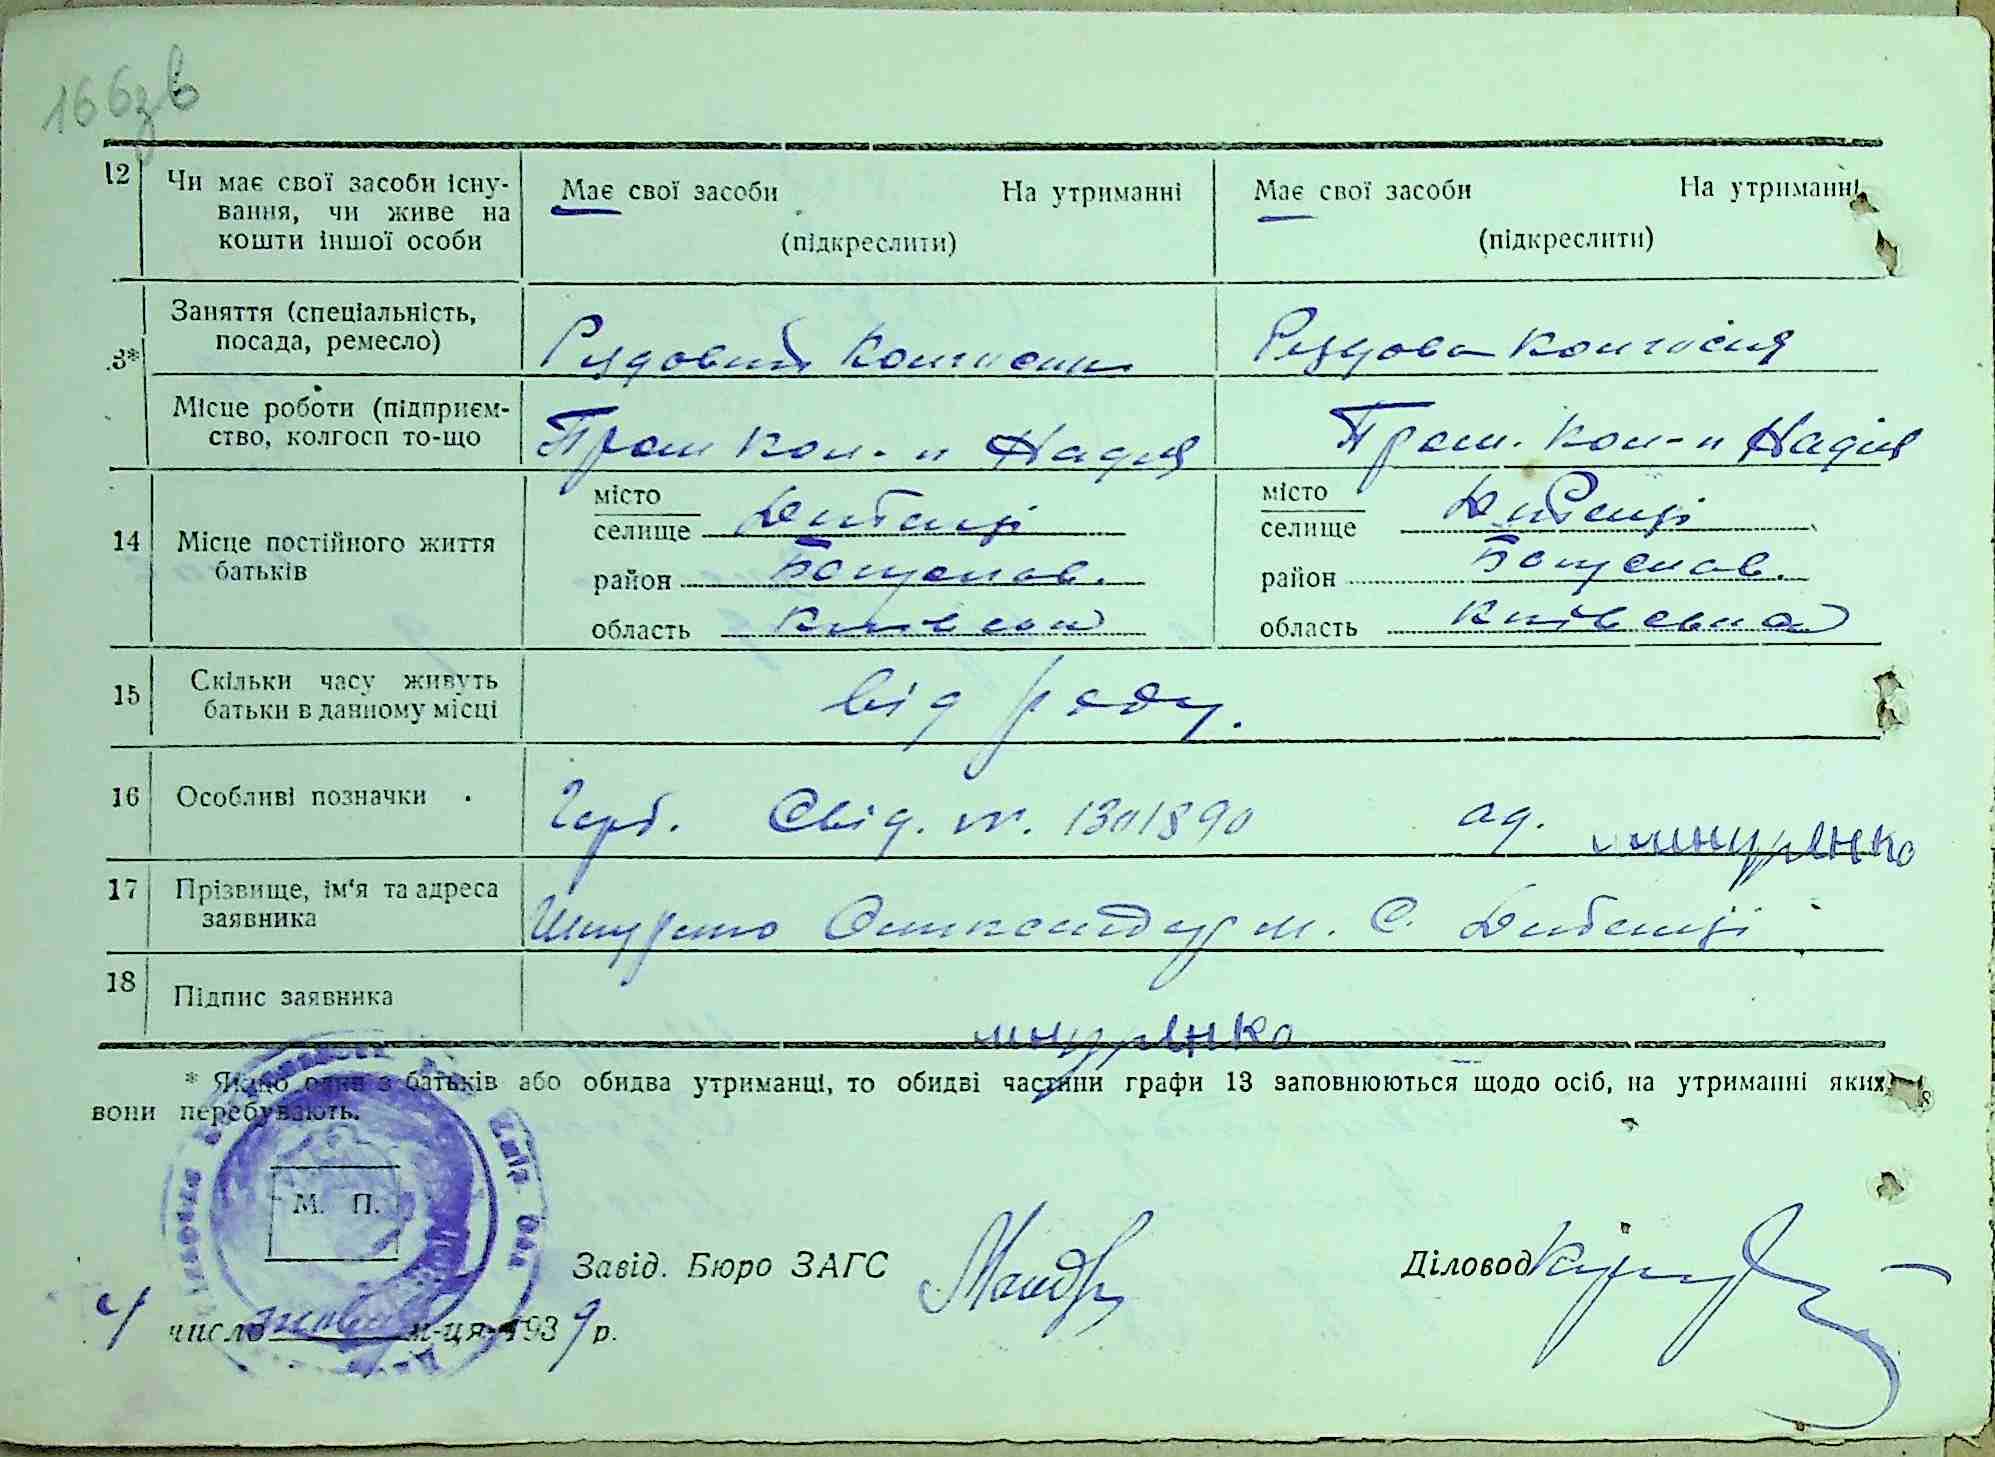 166зв
12 Чи має свої засоби існу- Має свої засоби На утриманні Має свої засоби На утриманні
вання, чи живе на
кошти іншої особи (підкреслити) (підкреслити)
Заняття (спеціальність,
посада, ремесло) Рядовий колгоспн Рядова колгоспя
3*
Місце роботи (підприєм-
ство, колгосп то-що Пром кол-п Надія Пром. кол-п Надія
місто місто
селище Дибенці селище Дибенці
14 Місце постійного життя
батьків район Богуслав. район Богуслав.
область Київської область Київської
15 Скільки часу живуть
батьки в данному місці від роду.
16 Особливі позначки Герб. Свід. № 1301890 од. шнурЕнко
17 Прізвище, ім'я та адреса
заявника Шнуренко Олександр м. С. Дибенці
18 Підпис заявника шнурЕнко
* Якщо один з батьків або обидва утриманці, то обидві частини графи 13 заповнюються щодо осіб, на утриманні яких
вони перебувають.
М. П.
Завід. Бюро ЗАГС Діловод
4 число жовтня м-ця 1939 р.